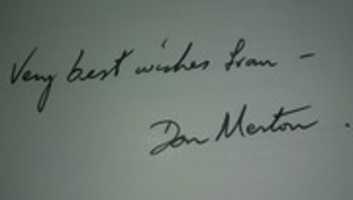 Very best wishes Fran -
Don Merton.